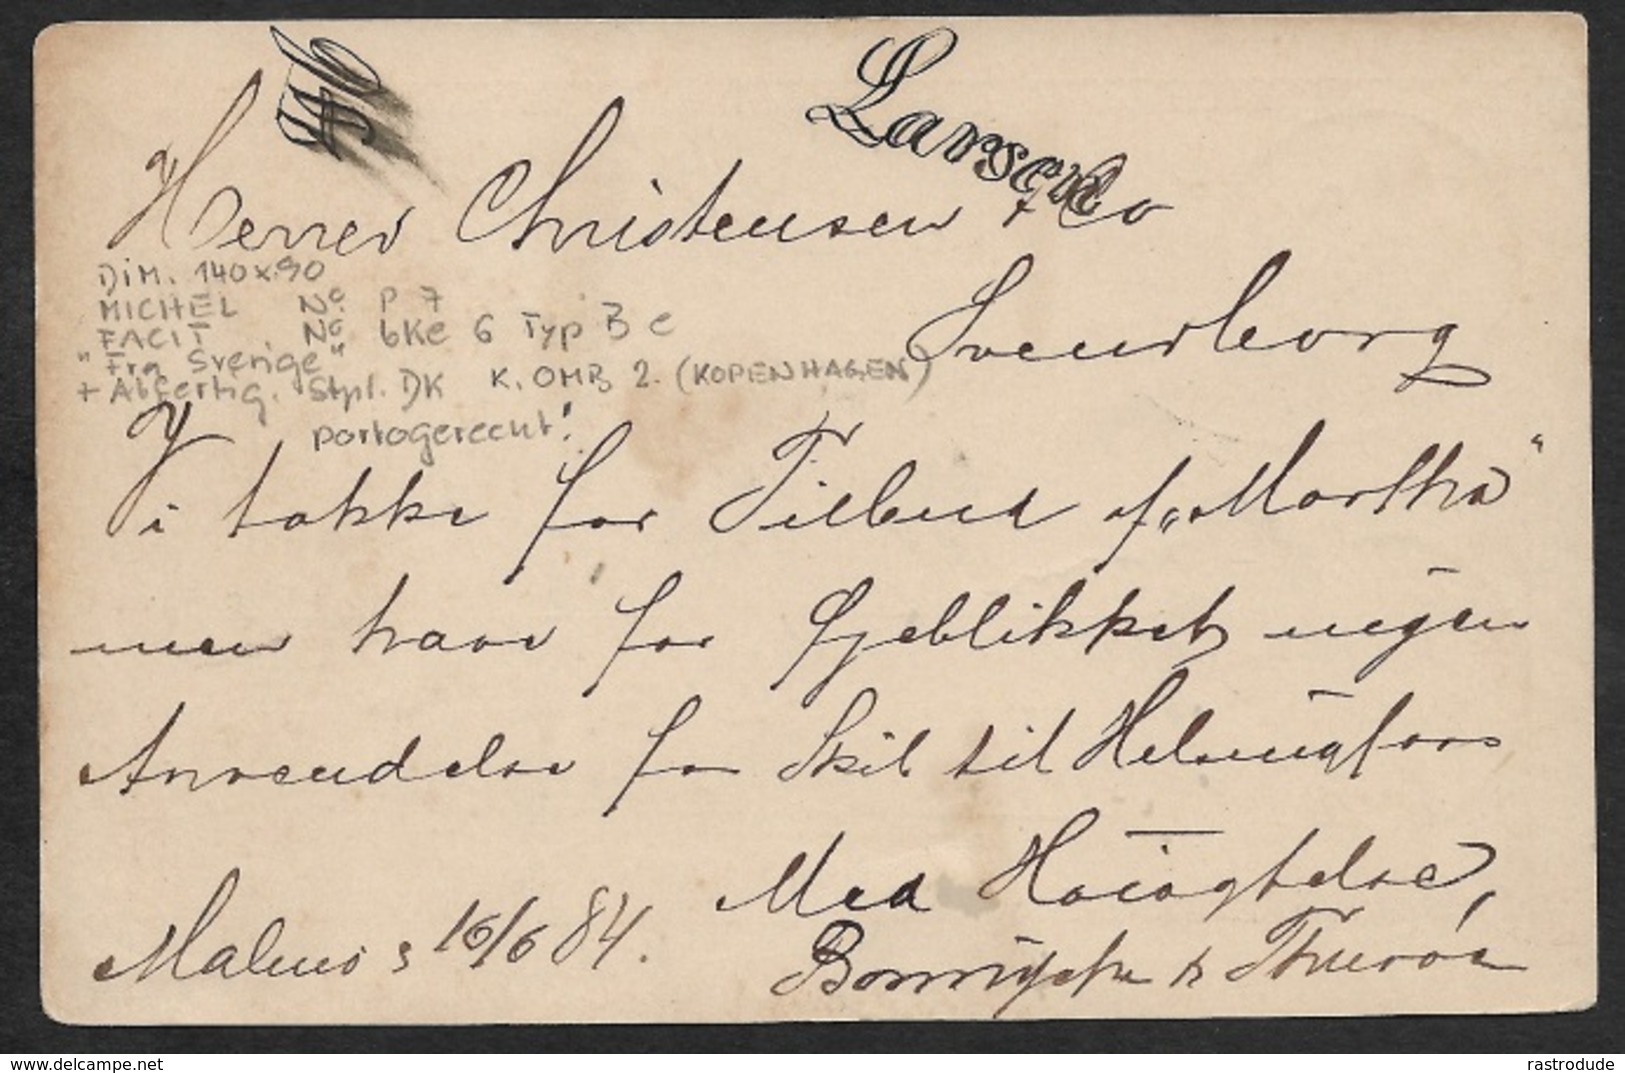 Larsen
Herrer Christensen & Co
Svendborg
DIM. 140x90
MICHEL No. P 7
FACIT No bKe 6 Typ B c
"Fra Sverige"
+ Abfertig. Stpl. DK K. OMB 2. (KOPENHAGEN)
portogerecht!
Vi takke for Tilbud af „Martha“
men have for Øjeblikket ingen
Anvendelse for Skib til Helsingfors
Med Høiagtelse,
Malmö d 16/6 84.
rastrodude
delcampe.net